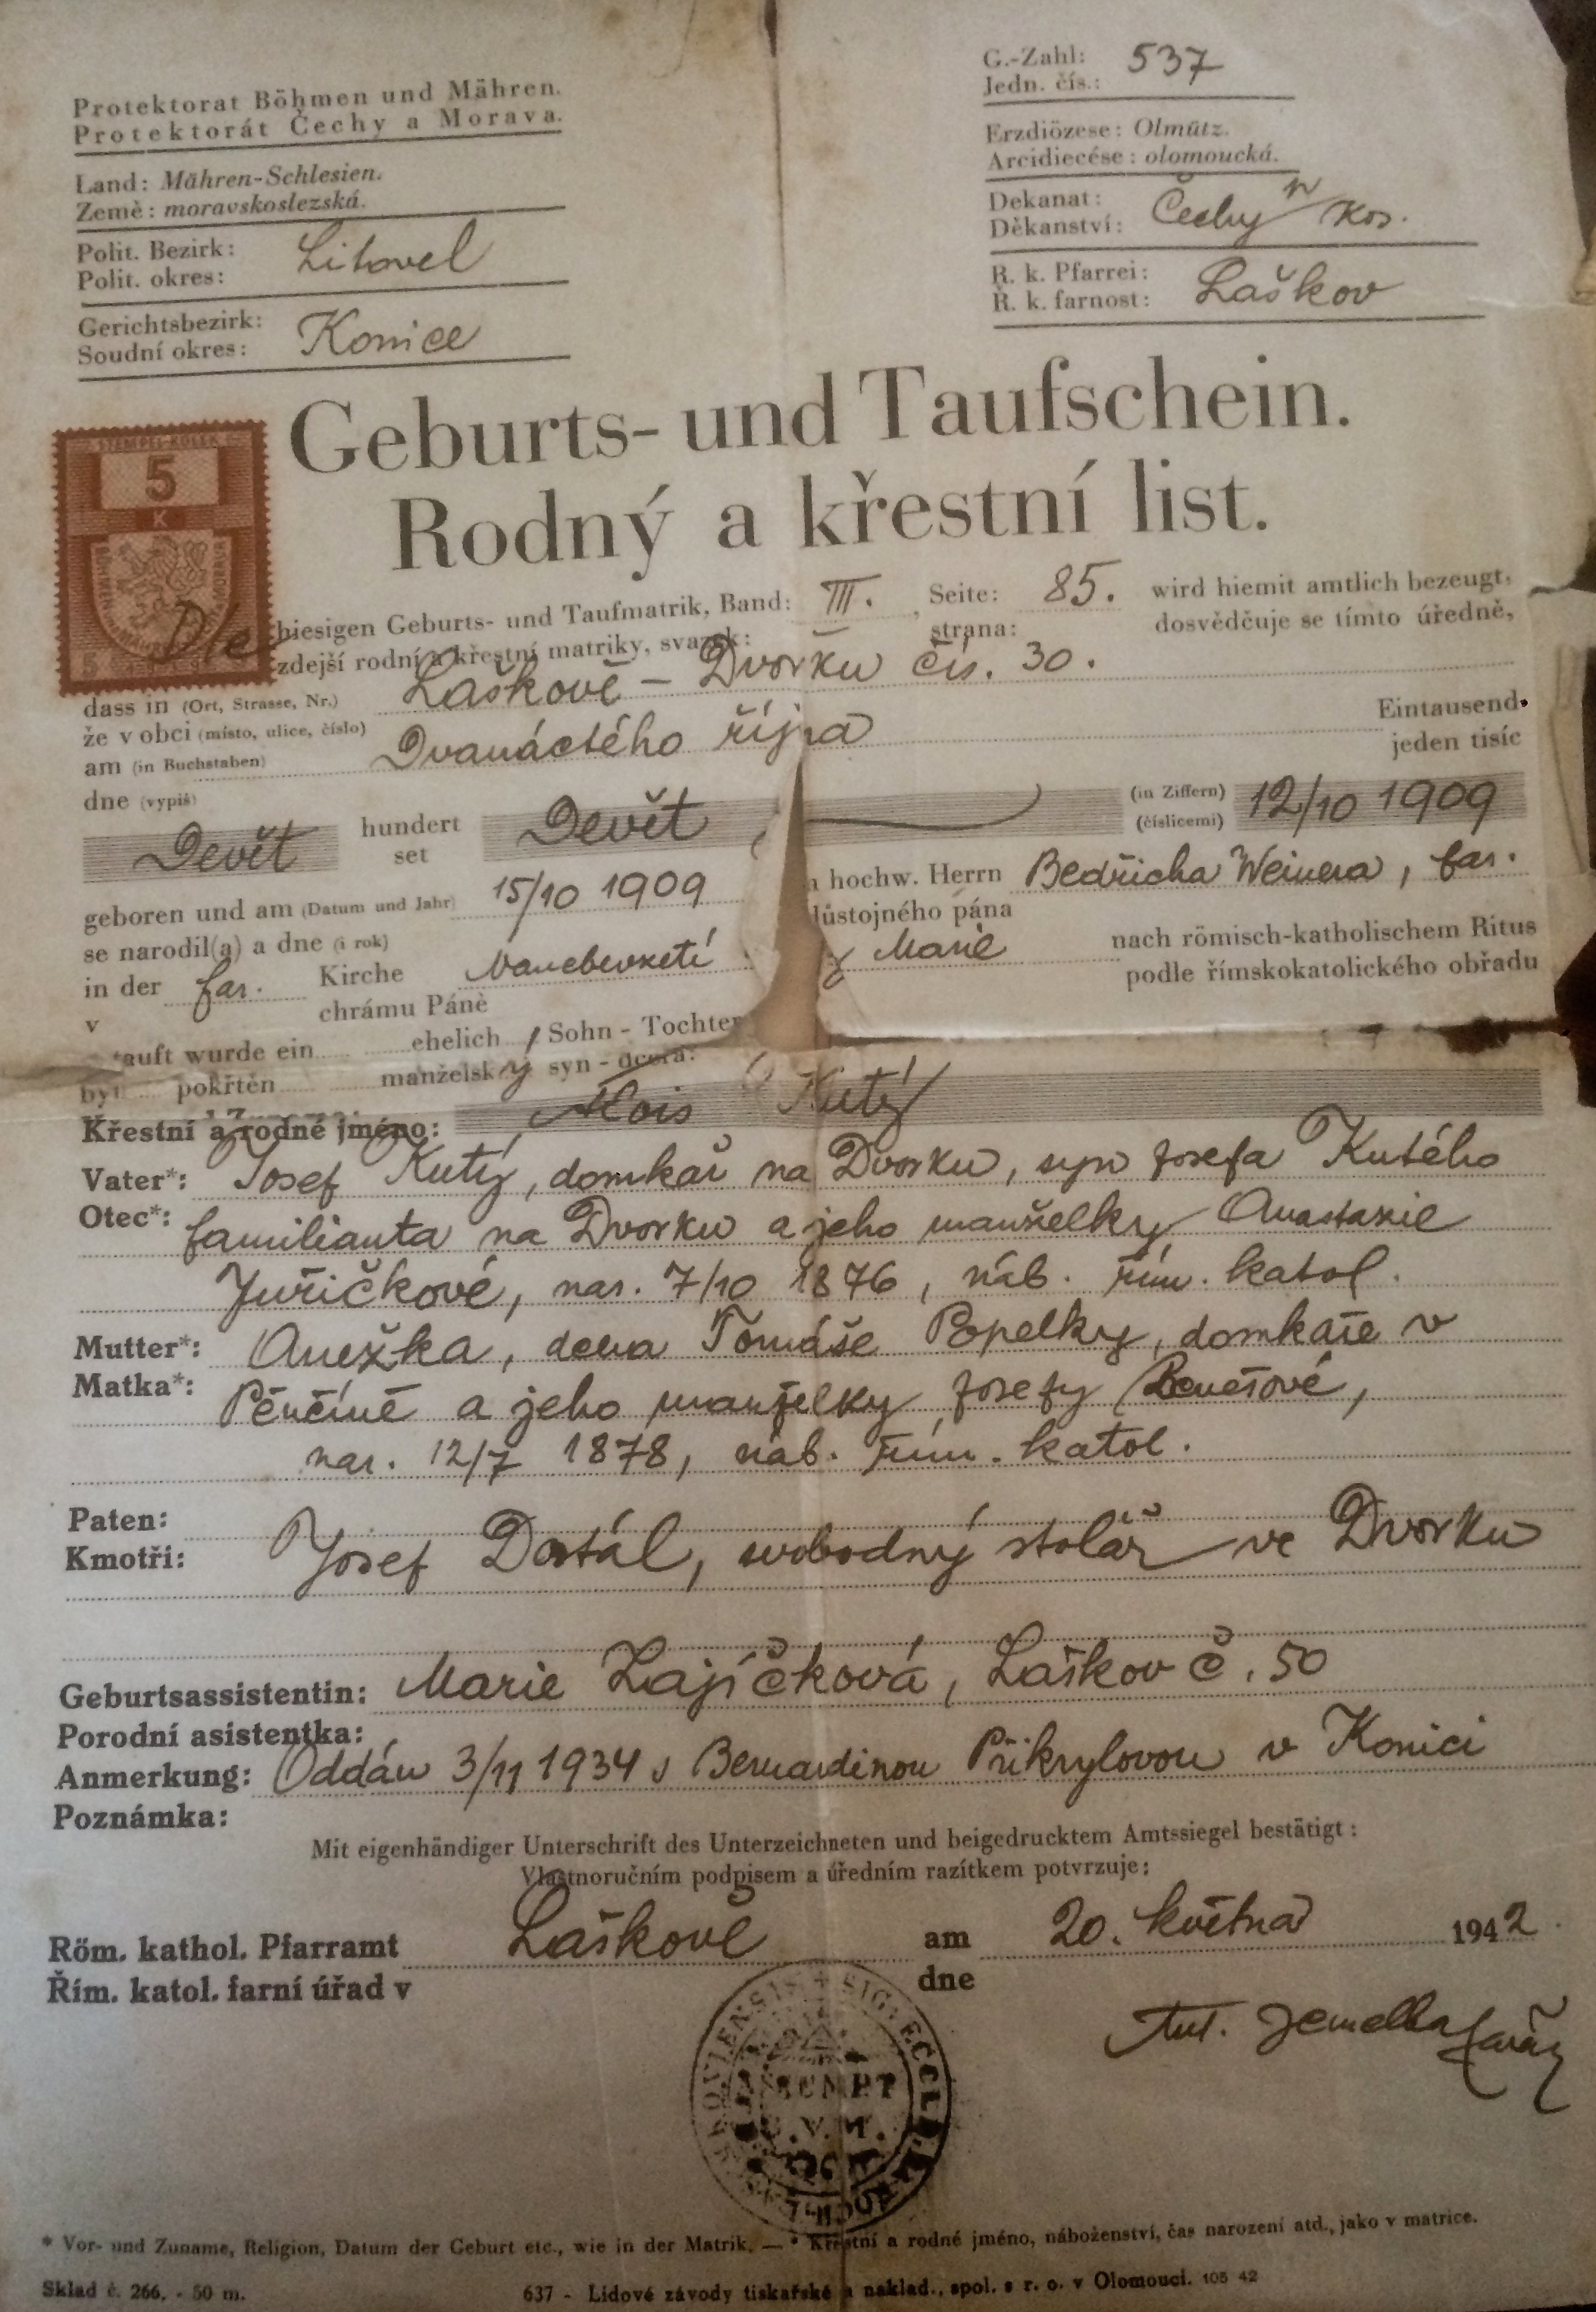 Protektorat Böhmen und Mähren.
Protektorát Čechy a Morava.
Land: Mähren-Schlesien.
Země: moravskoslezská.
Polit. Bezirk:
Polit. okres: Litovel
Gerichtsbezirk:
Soudní okres: Konice
G.-Zahl: 537
Jedn. čís.:
Erzdiözese: Olmütz.
Arcidiecése: olomoucká.
Dekanat: Čechy n/Kos.
Děkanství:
R. k. Pfarrei: Laškov
Ř. k. farnost:
Geburts- und Taufschein.
Rodný a křestní list.
STEMPEL-KOLEK
5
K
Dle hiesigen Geburts- und Taufmatrik, Band: III. , Seite: 85. wird hiemit amtlich bezeugt,
zdejší rodní a křestní matriky, svazek: strana: dosvědčuje se tímto úředně,
dass in (Ort, Strasse, Nr.) Laškově - Dvorku čís. 30.
že v obci (místo, ulice, číslo) Eintausend
am (in Buchstaben) Dvanáctého října jeden tisíc
dne (vypiš)
Devět hundert Devět (in Ziffern) 12/10 1909
set (číslicemi)
geboren und am (Datum und Jahr) 15/10 1909 hochw. Herrn Bedřicha Weinera, far.
se narodil(a) a dne (i rok) důstojného pána
in der far. Kirche Nanebevzetí Marie nach römisch-katholischem Ritus
v chrámu Páně podle římskokatolického obřadu
tauft wurde ein ehelich Sohn - Tochter
byl pokřtěn manželský syn - dcera:
Křestní a rodné jméno: Alois Kutý
Vater*: Josef Kutý, domkař na Dvorku, syn Josefa Kutého
Otec*: familianta na Dvorku a jeho manželky Anastazie
Juřičkové, nar. 7/10 1876, náb. řím. katol.
Mutter*: Anežka, dcera Tomáše Popelky, domkaře v
Matka*: Pěnčíně a jeho manželky Josefy Benešové,
nar. 12/7 1878, náb. řím. katol.
Paten:
Kmotři: Josef Dostál, svobodný stolář ve Dvorku
Geburtsassistentin: Marie Zajíčková, Laškov č. 50
Porodní asistentka:
Anmerkung: Oddán 3/11 1934 s Bernardinou Přikrylovou v Konici
Poznámka:
Mit eigenhändiger Unterschrift des Unterzeichneten und beigedrucktem Amtssiegel bestätigt:
Vlastnoručním podpisem a úředním razítkem potvrzuje:
Röm. kathol. Pfarramt Laškově am 20. května 1942
Řím. katol. farní úřad v dne
Ant. Zemelka farář
* Vor- und Zuname, Religion, Datum der Geburt etc., wie in der Matrik. — * Křestní a rodné jméno, náboženství, čas narození atd., jako v matrice.
Sklad č. 266. - 50 m. 637 - Lidové závody tiskařské a naklad., spol. s r. o. v Olomouci. 105 42